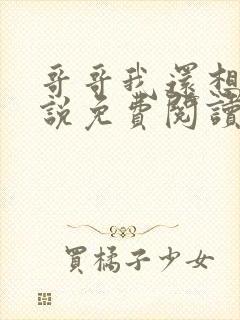 哥哥我還想
說免費閱讀
買橘子少女